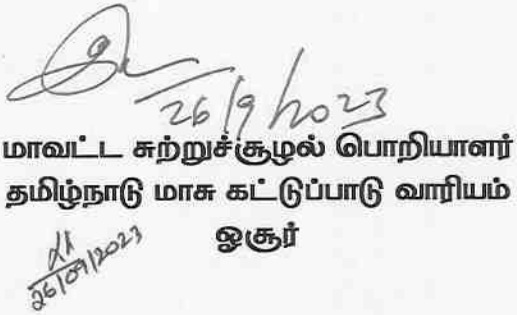 26/9/2023
மாவட்ட சுற்றுச்சூழல் பொறியாளர்
தமிழ்நாடு மாசு கட்டுப்பாடு வாரியம்
ஓசூர்
26/09/2023